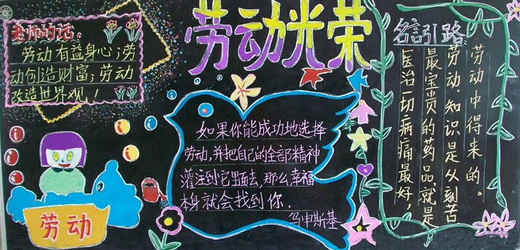 劳动光荣
老师的话:
劳动有益身心;劳
动创造财富;劳动
改造世界观!
劳动
如果你能成功地选择
劳动,并把自己的全部精神
灌注到它里面去,那么幸福
本身就会找到你.
乌申斯基
名言引路:
医治一切病痛最好
最宝贵的药品就是
劳动,知识是从刻苦
劳动中得来的。